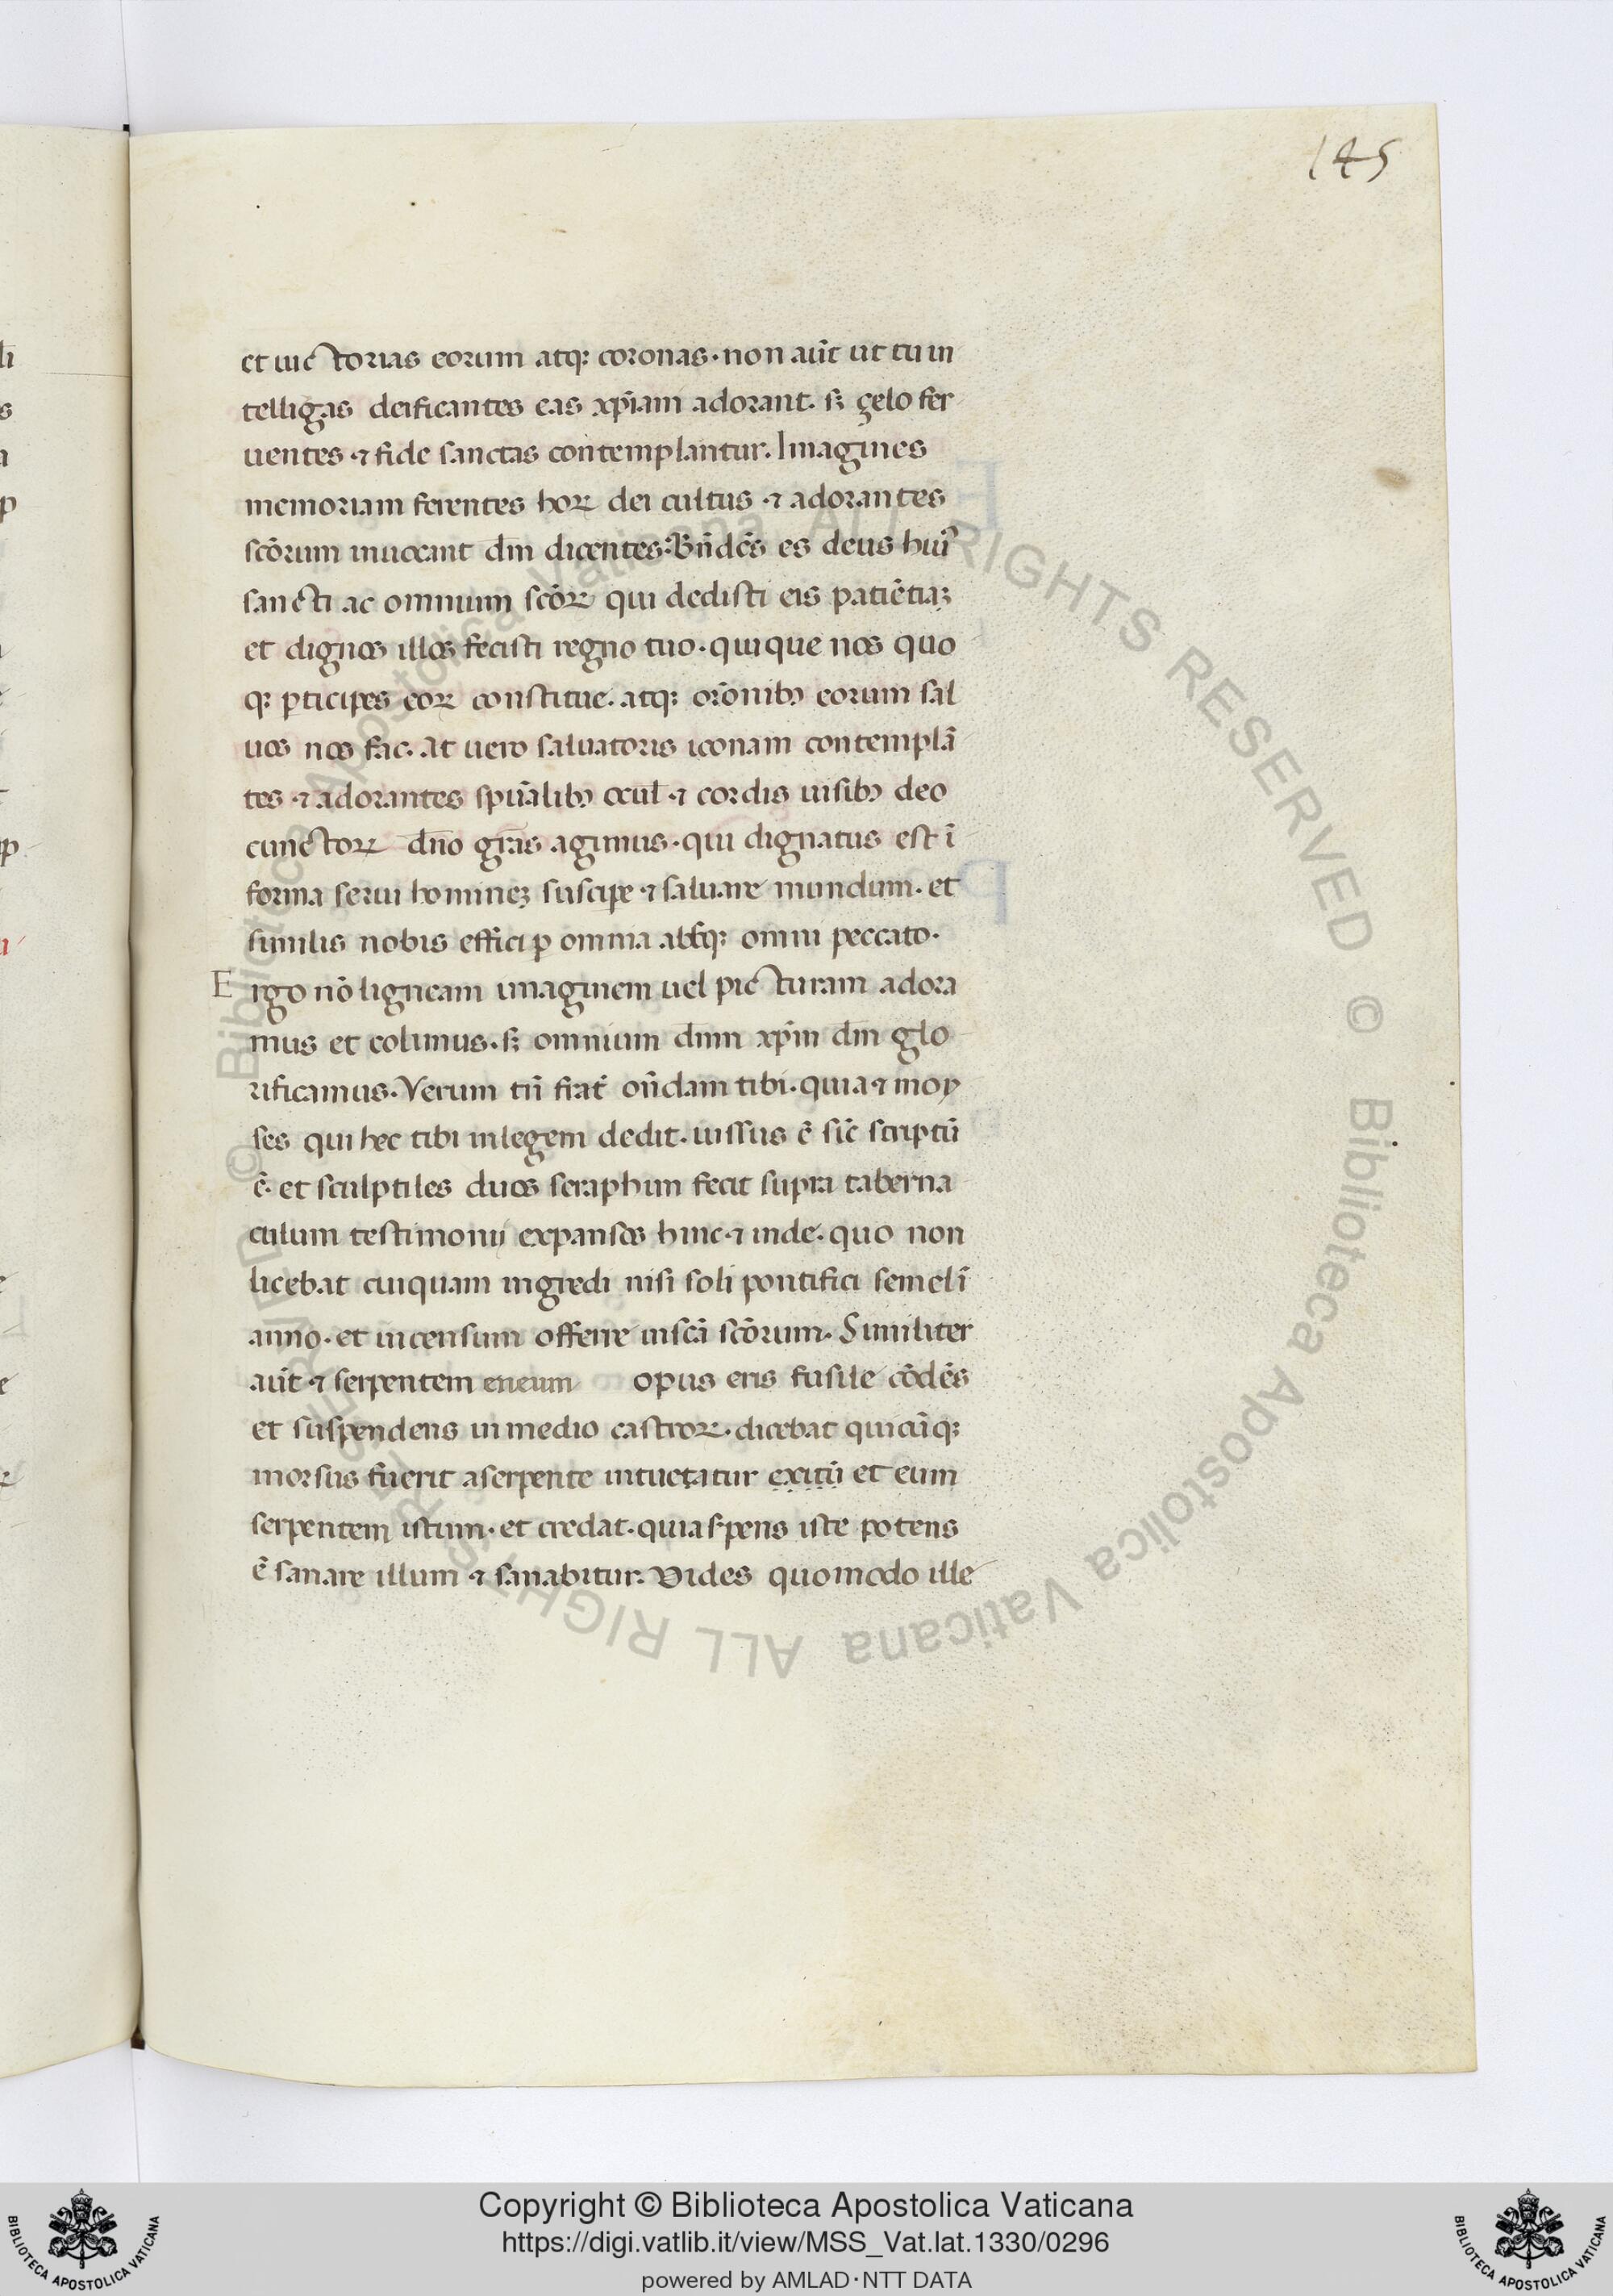 145
et uictorias eorum atq; coronas. non aūt ut tu in
telligas deificantes eas xp̄iam adorant. sꝫ çelo fer
uentes ⁊ fide sanctas contemplantur. Imagines
memoriam ferentes hoꝝ dei cultus ⁊ adorantes
scōrum inuocant dm̄ dicentes. Bn̄dc̄s es deus huiꝰ
sancti ac omnium scōꝝ qui dedisti eis patiētiaꝫ
et dignos illos fecisti regno tuo. quique nos quo
qꝫ ꝑticipes eoꝝ constitue. atqꝫ orōnibꝫ eorum sal
uos nos fac. At uero saluatoris iconam contemplā
tes ⁊ adorantes spūalibꝫ ocul̄ ⁊ cordis uisibꝫ deo
cunctoꝝ dn̄o grās agimus. qui dignatus est ī
forma serui homineꝫ suscipe ⁊ saluare mundum. et
similis nobis effici ꝑ omnia absqꝫ omni peccato.
Ergo nō ligneam imaginem uel picturam adora
mus et colimus. sꝫ omnium dnm̄ xp̄m dm̄ glo
rificamus. Verum tn̄ frat̄ on̄dam tibi. quia ⁊ moy
ses qui hec tibi inlegem dedit. iussus ē sic̄ scriptū
ē. et sculptiles duos seraphim fecit supra taberna
culum testimonij expansos hinc ⁊ inde. quo non
licebat cuiquam ingredi nisi soli pontifici semel ī
anno. et incensum offerre inscā scōrum. Similiter
aūt ⁊ serpentem eneum opus eris fusile cōdēs
et suspendens in medio castroꝝ. dicebat quicūqꝫ
morsus fuerit aserpente intuetatur exitū et eum
serpentem istum. et credat. quia sꝑens iste potens
ē sanare illum ⁊ sanabitur. Vides quomodo ille
Copyright © Biblioteca Apostolica Vaticana
https://digi.vatlib.it/view/MSS_Vat.lat.1330/0296
powered by AMLAD·NTT DATA